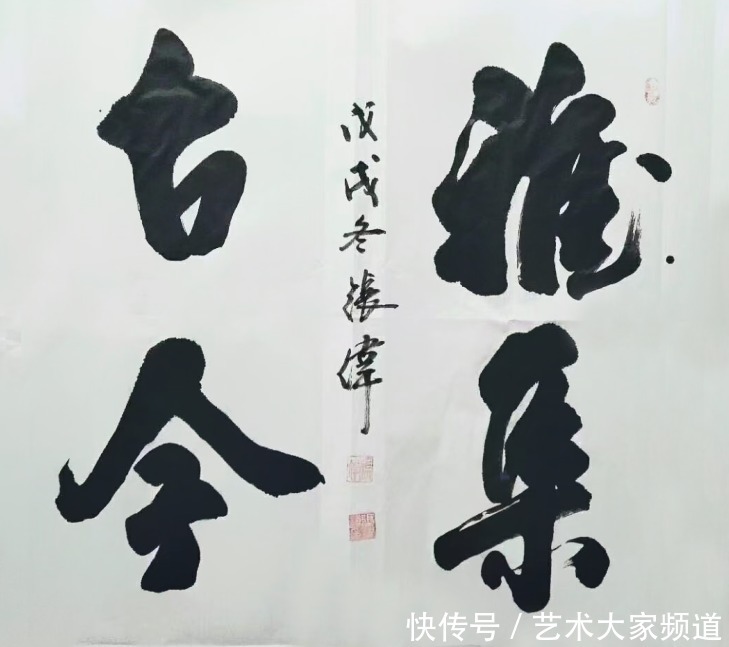 雅集
古今
戊戌冬張偉
快传号 / 艺术大家频道